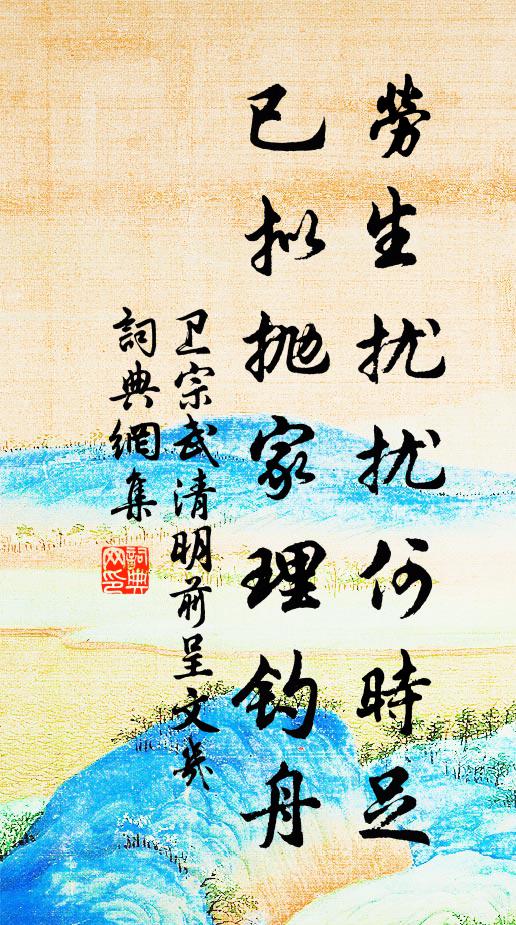 勞生扰扰何時足
已拟抛家理钓舟
卫宗武清明前呈文炎
詞典網集
詞典网印